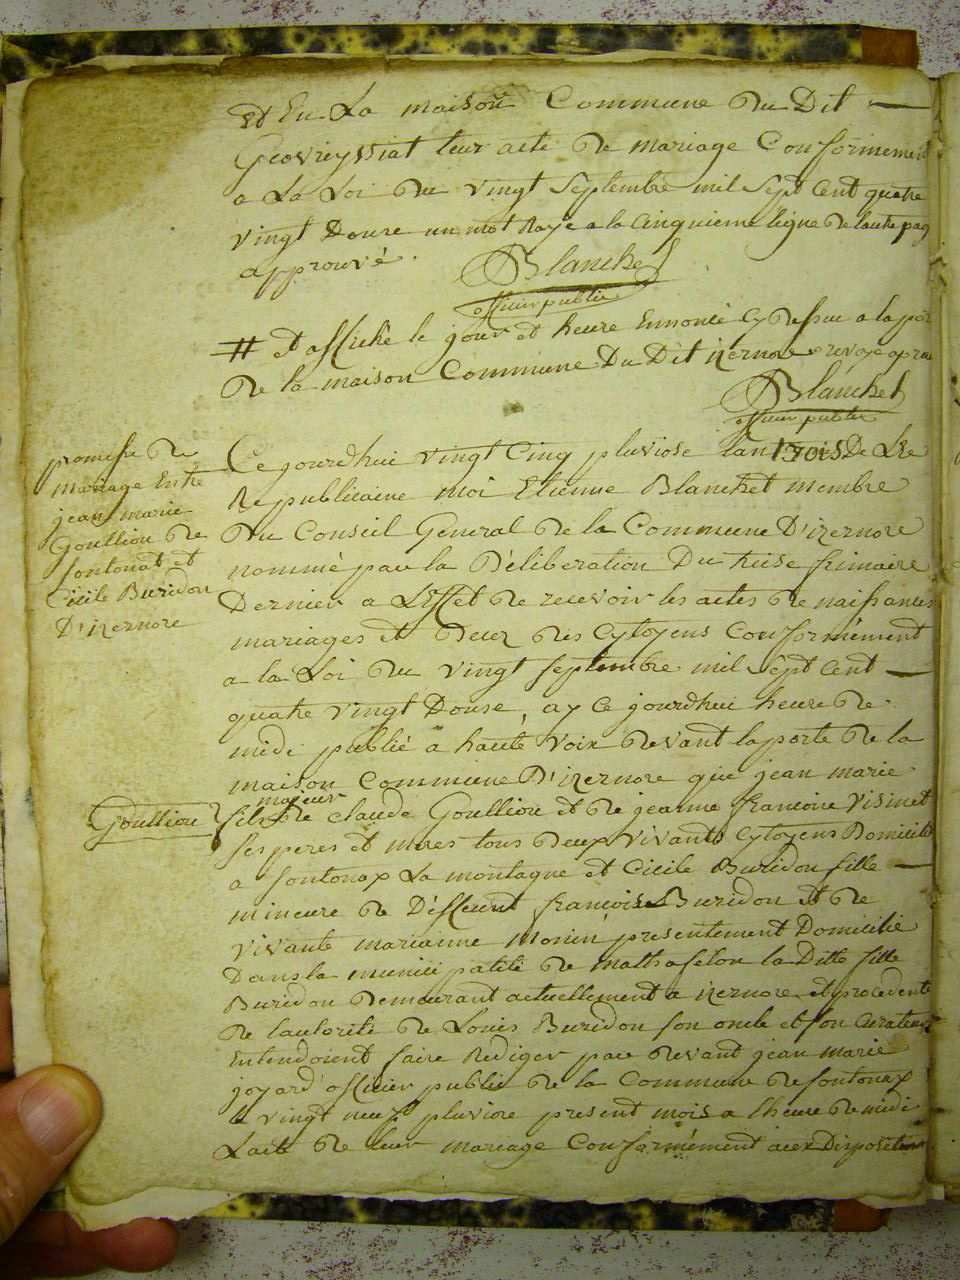 Et En La maison Commune Du Dit
Geovreyssiat leur acte De mariage Conformement
a La Loi Du vingt Septembre mil Sept Cent quatre
vingt Douze un mot Raye a la Cinquieme ligne De lautre pag
approuvé.
Blanchet
officier public
# Et affiché le jour et heure Ennoncé Cy Dessue a la por
De la maison Commune Du Dit izernore
Blanchet
officier public
promesse De
Mariage Entre
jean marie
Goullion De
fontonat et
Cicile Buridon
D'izernore
Ce jourdhui vingt Cinq pluviose lan trois De Lre
Republicaine moi Etienne Blanchet membre
Du Conseil General De la Commune D'izernore
nommé par la Déliberation Du treise frimaire
Dernier a Leffet De recevoir les actes De naissances
mariages et Decez Des Cytoyens Conformément
a la Loi Du vingt septembre mil Sept Cent
quatre vingt Douse, ay Ce jourdhui heure De
midi publié a haute voix Devant la porte De la
maison Commune D'izernore que jean marie
Goullion
fils majeur De claude Goullion et De jeanne francoise Visinet
Ses peres et meres tous Deux vivants Cytoyens Domicilié
a fontonax La montagne et Cicile Buridon fille
mineure De Deffeunt francois Buridon et De
vivante marianne Monin presentement Domicilie
Dans la municipalité De mathafelon la Ditte fille
Buridon Demeurant actuellement a izernore et procedente
De lautorité De Louis Buridon son oncle et son Curateur
Entendoient faire Rediger par Devant jean marie
joyard officier public De la Commune De fontonax
le vingt neuf pluviose present mois a lheure De midi
Lacte De leur mariage Conformément aux Disposition